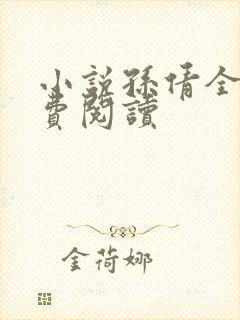 小説孫倩全
費閱讀
金荷娜